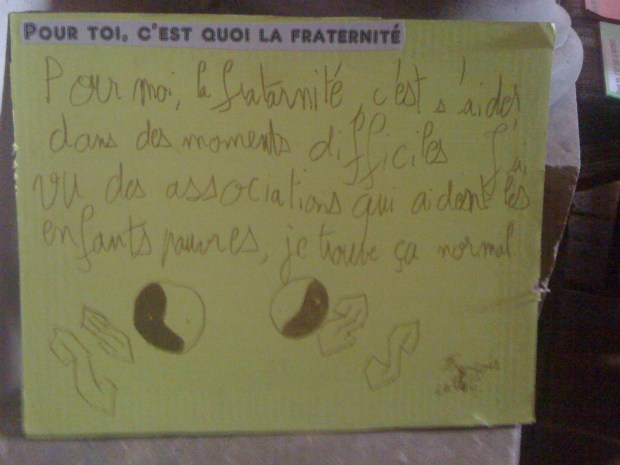 POUR TOI, C'EST QUOI LA FRATERNITÉ
Pour moi, la fratarnité, c'est s'aider
dans des moments difficiles J'ai
vu des associations qui aident les
enfants pauvres, je troube ça normal